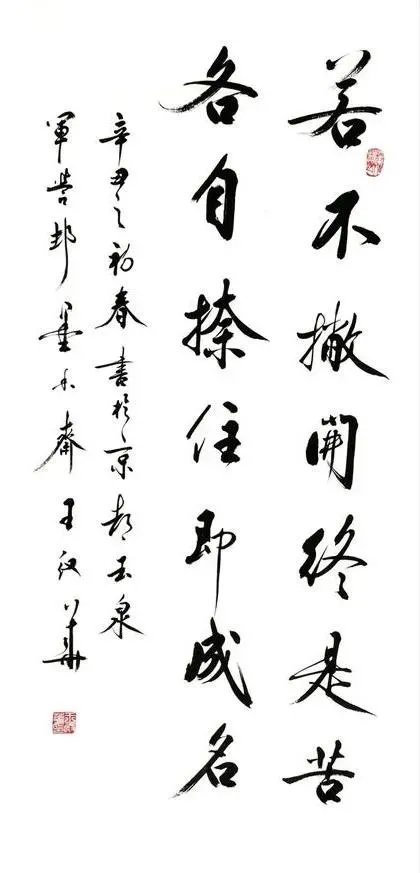 若不撇開終是苦
各自捺住即成名
辛丑之初春書於京都玉泉
軍营墨齋王華